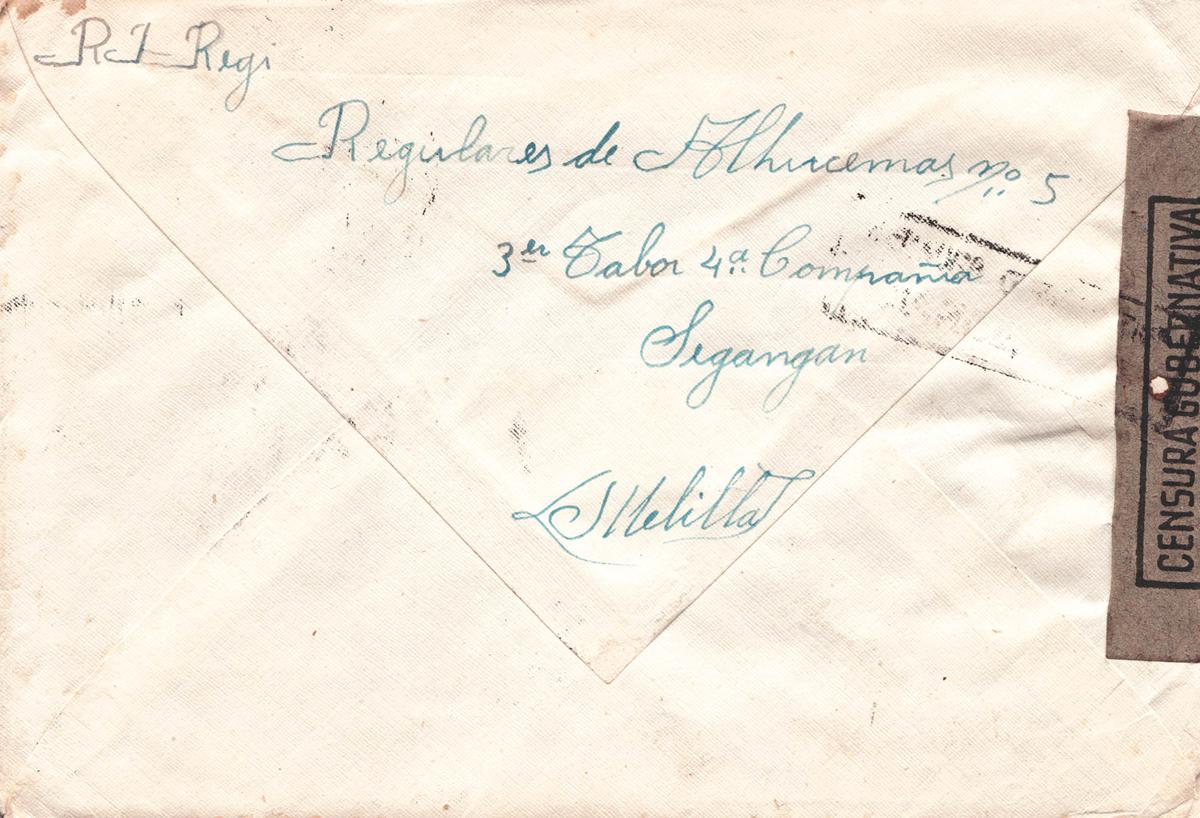 R I Regi
Regulares de Alhucemas nº 5
3er Tabor 4ª Compañia
Segangan
Melilla
CENSURA GUBERNATIVA